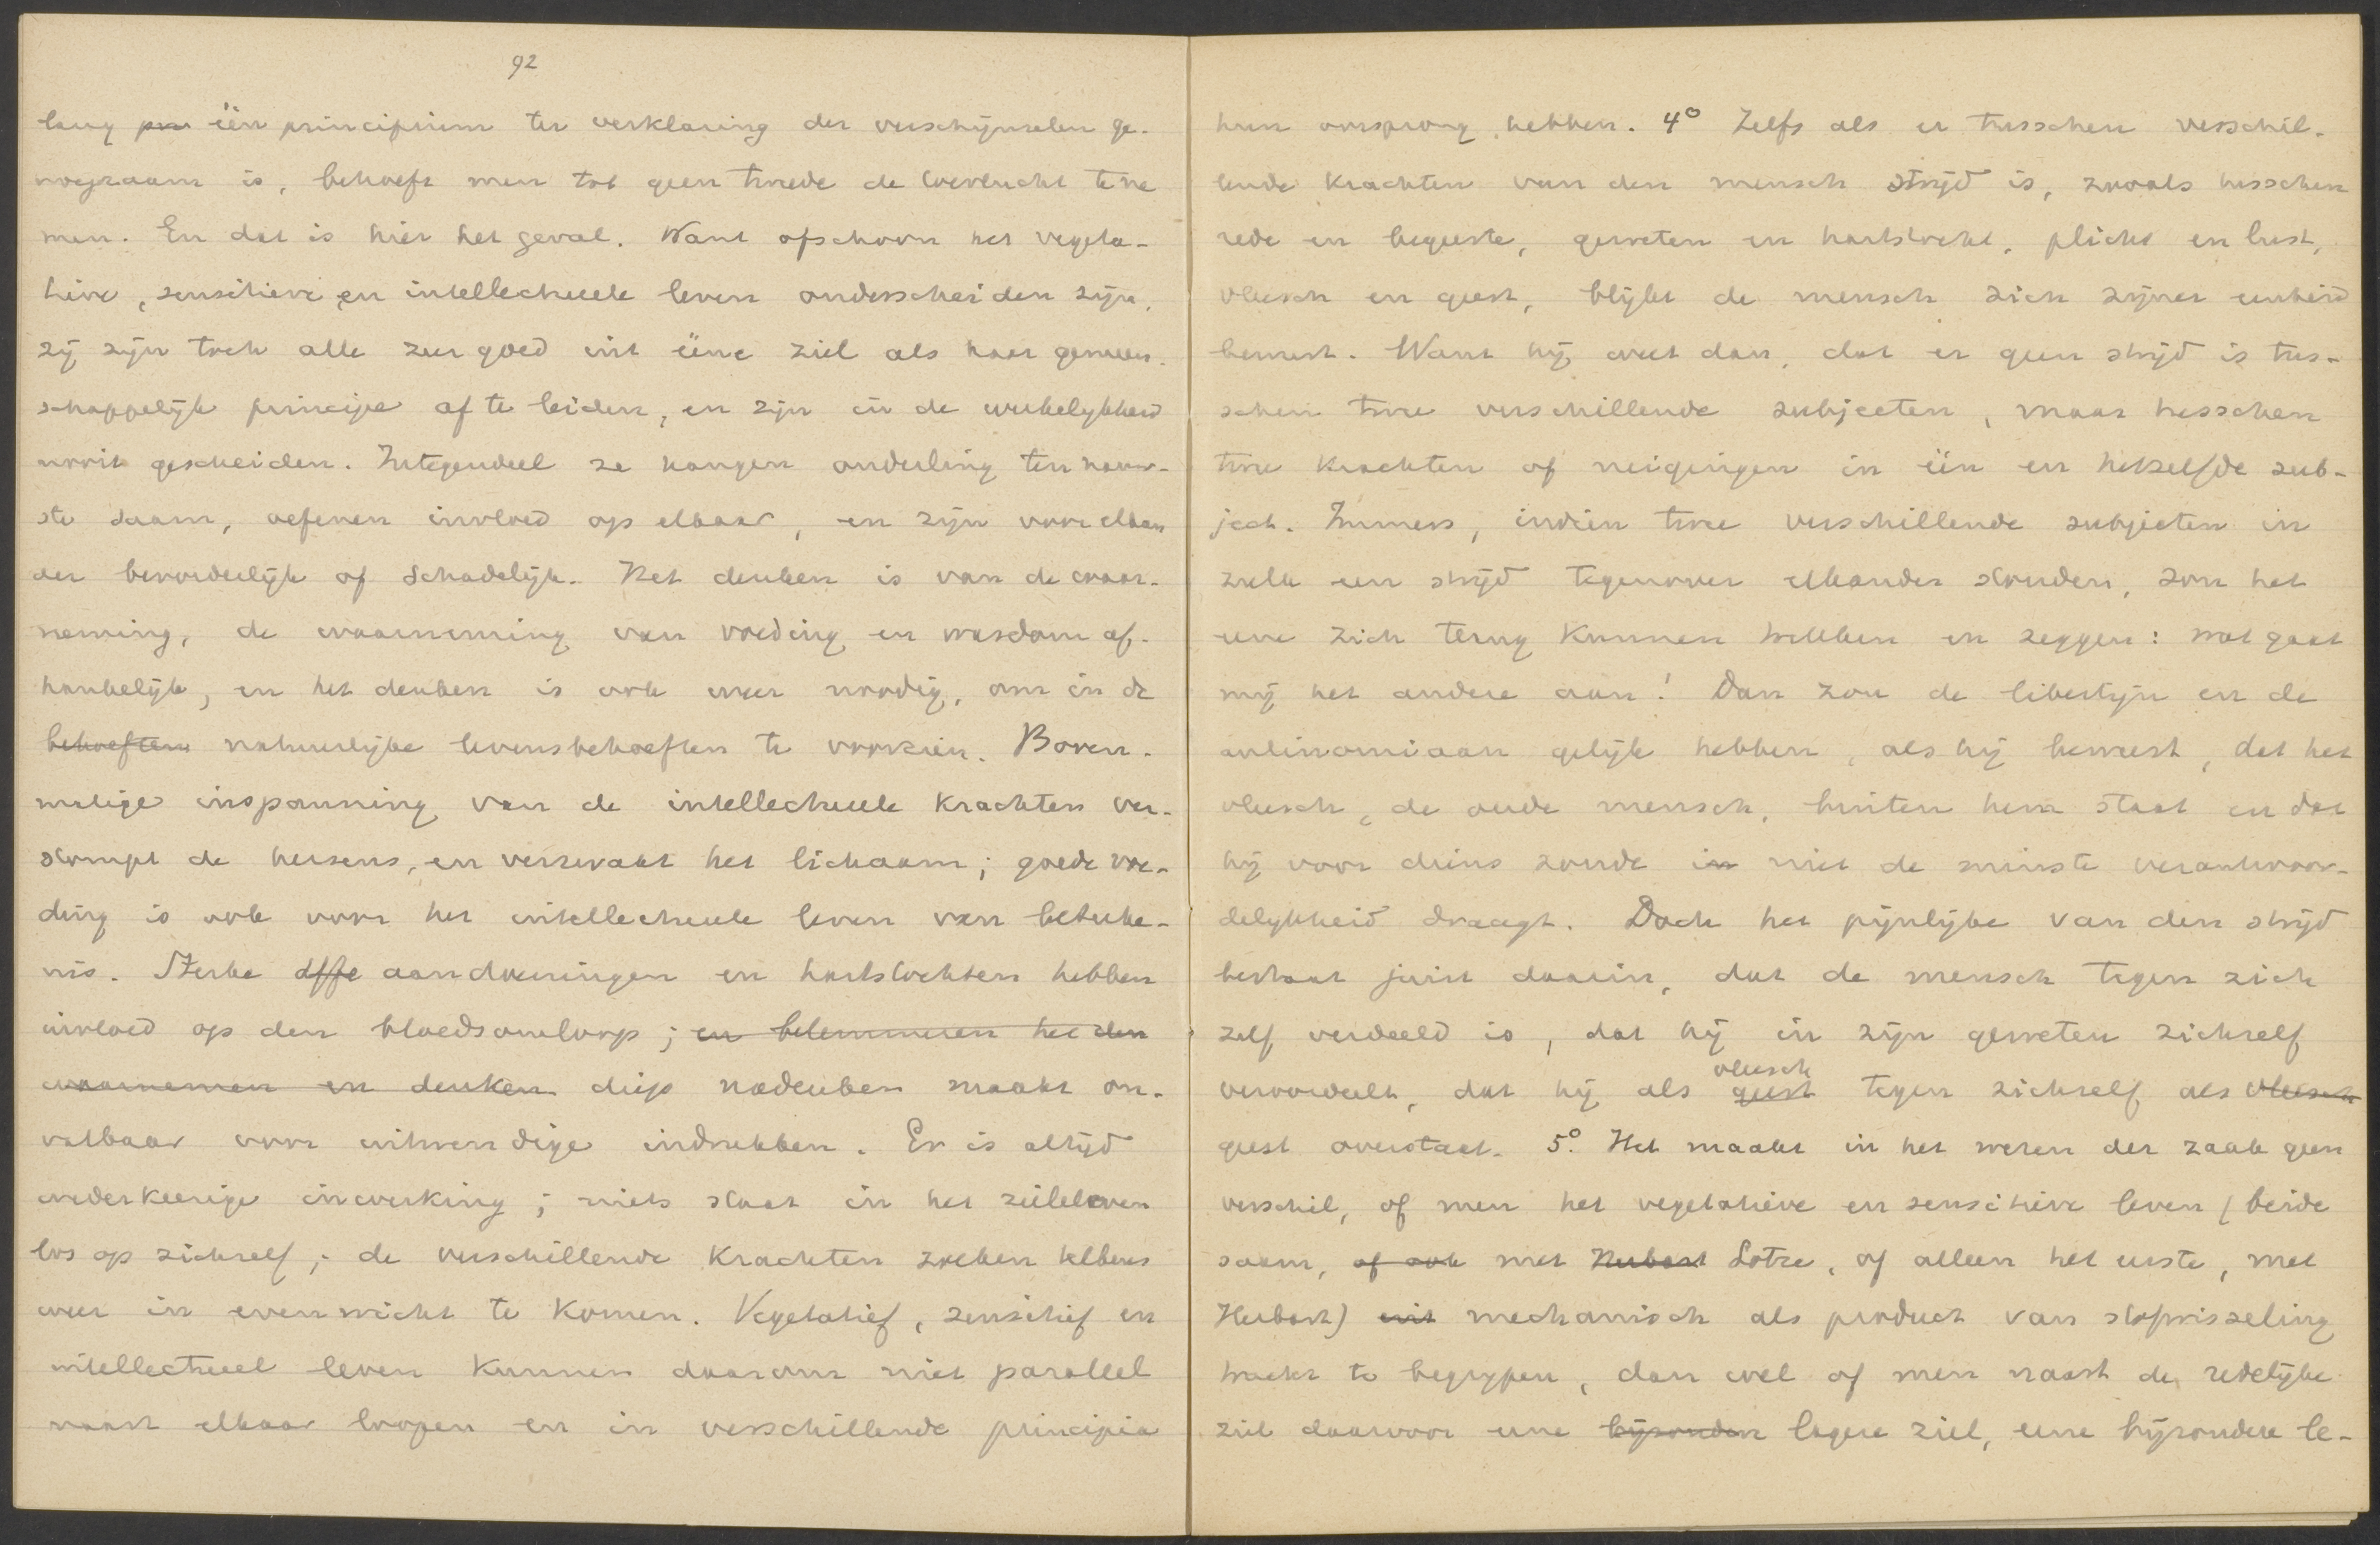 92
lang één principium ter verklaring der verschijnselen ge-
noegzaam is, behoeft men tot geen tweede de toevlucht te ne
men. En dat is hier het geval. Want ofschoon het vegeta-
tieve, sensitieve en intellectueele leven onderscheiden zijn,
zij zijn toch alle zeer goed uit ééne ziel als haar gemeen-
schappelijk principe af te leiden, en zijn in de werkelijkheid
nooit gescheiden. Integendeel ze hangen onderling ten nauw-
ste saam, oefenen invloed op elkaar, en zijn voor elkan
der bevorderlijk of schadelijk. Het denken is van de waar-
neming, de waarneming van voeding en wasdom af-
hankelijk, en het denken is ook weer noodig, om in de
behoeften natuurlijke levensbehoeften te voorzien. Boven-
matige inspanning van de intellectueele krachten ver-
stompt de hersens, en verzwakt het lichaam; goede voe-
ding is ook voor het intellectueele leven van beteeke-
nis. Sterke affe aandoeningen en hartstochten hebben
invloed op den bloedsomloop; en belemmeren het den
waarnemen en denken diep nadenken maakt on-
vatbaar voor uitwendige indrukken. Er is altijd
wederkeerige inwerking; niets staat in het zieleleven
los op zichzelf; de verschillende krachten zoeken telkens
weer in evenwicht te komen. Vegetatief, sensitief en
intellectueel leven kunnen daarom niet parallel
naast elkaar loopen en in verschillende principia
hun oorsprong hebben. 4° Zelfs als er tusschen verschil-
lende krachten van den mensch strijd is, zooals tusschen
rede en begeerte, geweten en hartstocht, plicht en lust,
vleesch en geest, blijkt de mensch zich zijner eenheid
bewust. Want hij weet dan, dat er geen strijd is tus-
schen twee verschillende subjecten, maar tusschen
twee krachten of neigingen in één en hetzelfde sub-
ject. Immers, indien twee verschillende subjecten in
zulk een strijd tegenover elkander stonden, zou het
eene zich terug kunnen trekken en zeggen: wat gaat
mij het andere aan! Dan zou de libertijn en de
antinomiaan gelijk hebben, als hij beweert, dat het
vleesch, de oude mensch, buiten hem staat en dat
hij voor diens zonde in niet de minste verantwoor-
delijkheid draagt. Doch het pijnlijke van den strijd
bestaat juist daarin, dat de mensch tegen zich
zelf verdeeld is, dat hij in zijn geweten zichzelf
vleesch
veroordeelt, dat hij als geest tegen zichzelf als vleesch
geest overstaat. 5° Het maakt in het wezen der zaak geen
verschil, of men het vegetatieve en sensitieve leven (beide
saam, of ook met Herbart Lotze, of alleen het eerste, met
Herbart) uit mechanisch als product van stofwisseling
tracht te begrijpen, dan wel of men naast de redelijke
ziel daarvoor eene bijzondere lagere ziel, eene bijzondere le-